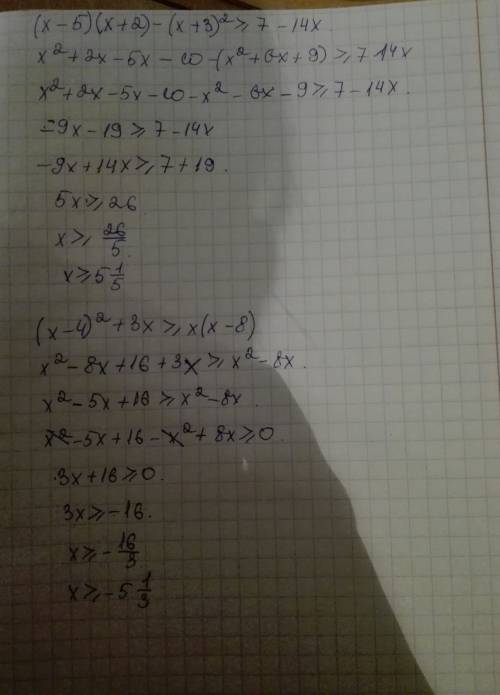 (x-5)(x+2)-(x+3)²≥7-14x
x²+2x-5x-10-(x²+6x+9)≥7-14x
x²+2x-5x-10-x²-6x-9≥7-14x.
-9x-19≥7-14x
-9x+14x≥7+19.
5x≥26
x≥26/5
x≥5 1/5
(x-4)²+3x≥x(x-8)
x²-8x+16+3x≥x²-8x.
x²-5x+16≥x²-8x.
x²-5x+16-x²+8x≥0
3x+16≥0.
3x≥-16.
x≥-16/3
x≥-5 1/3